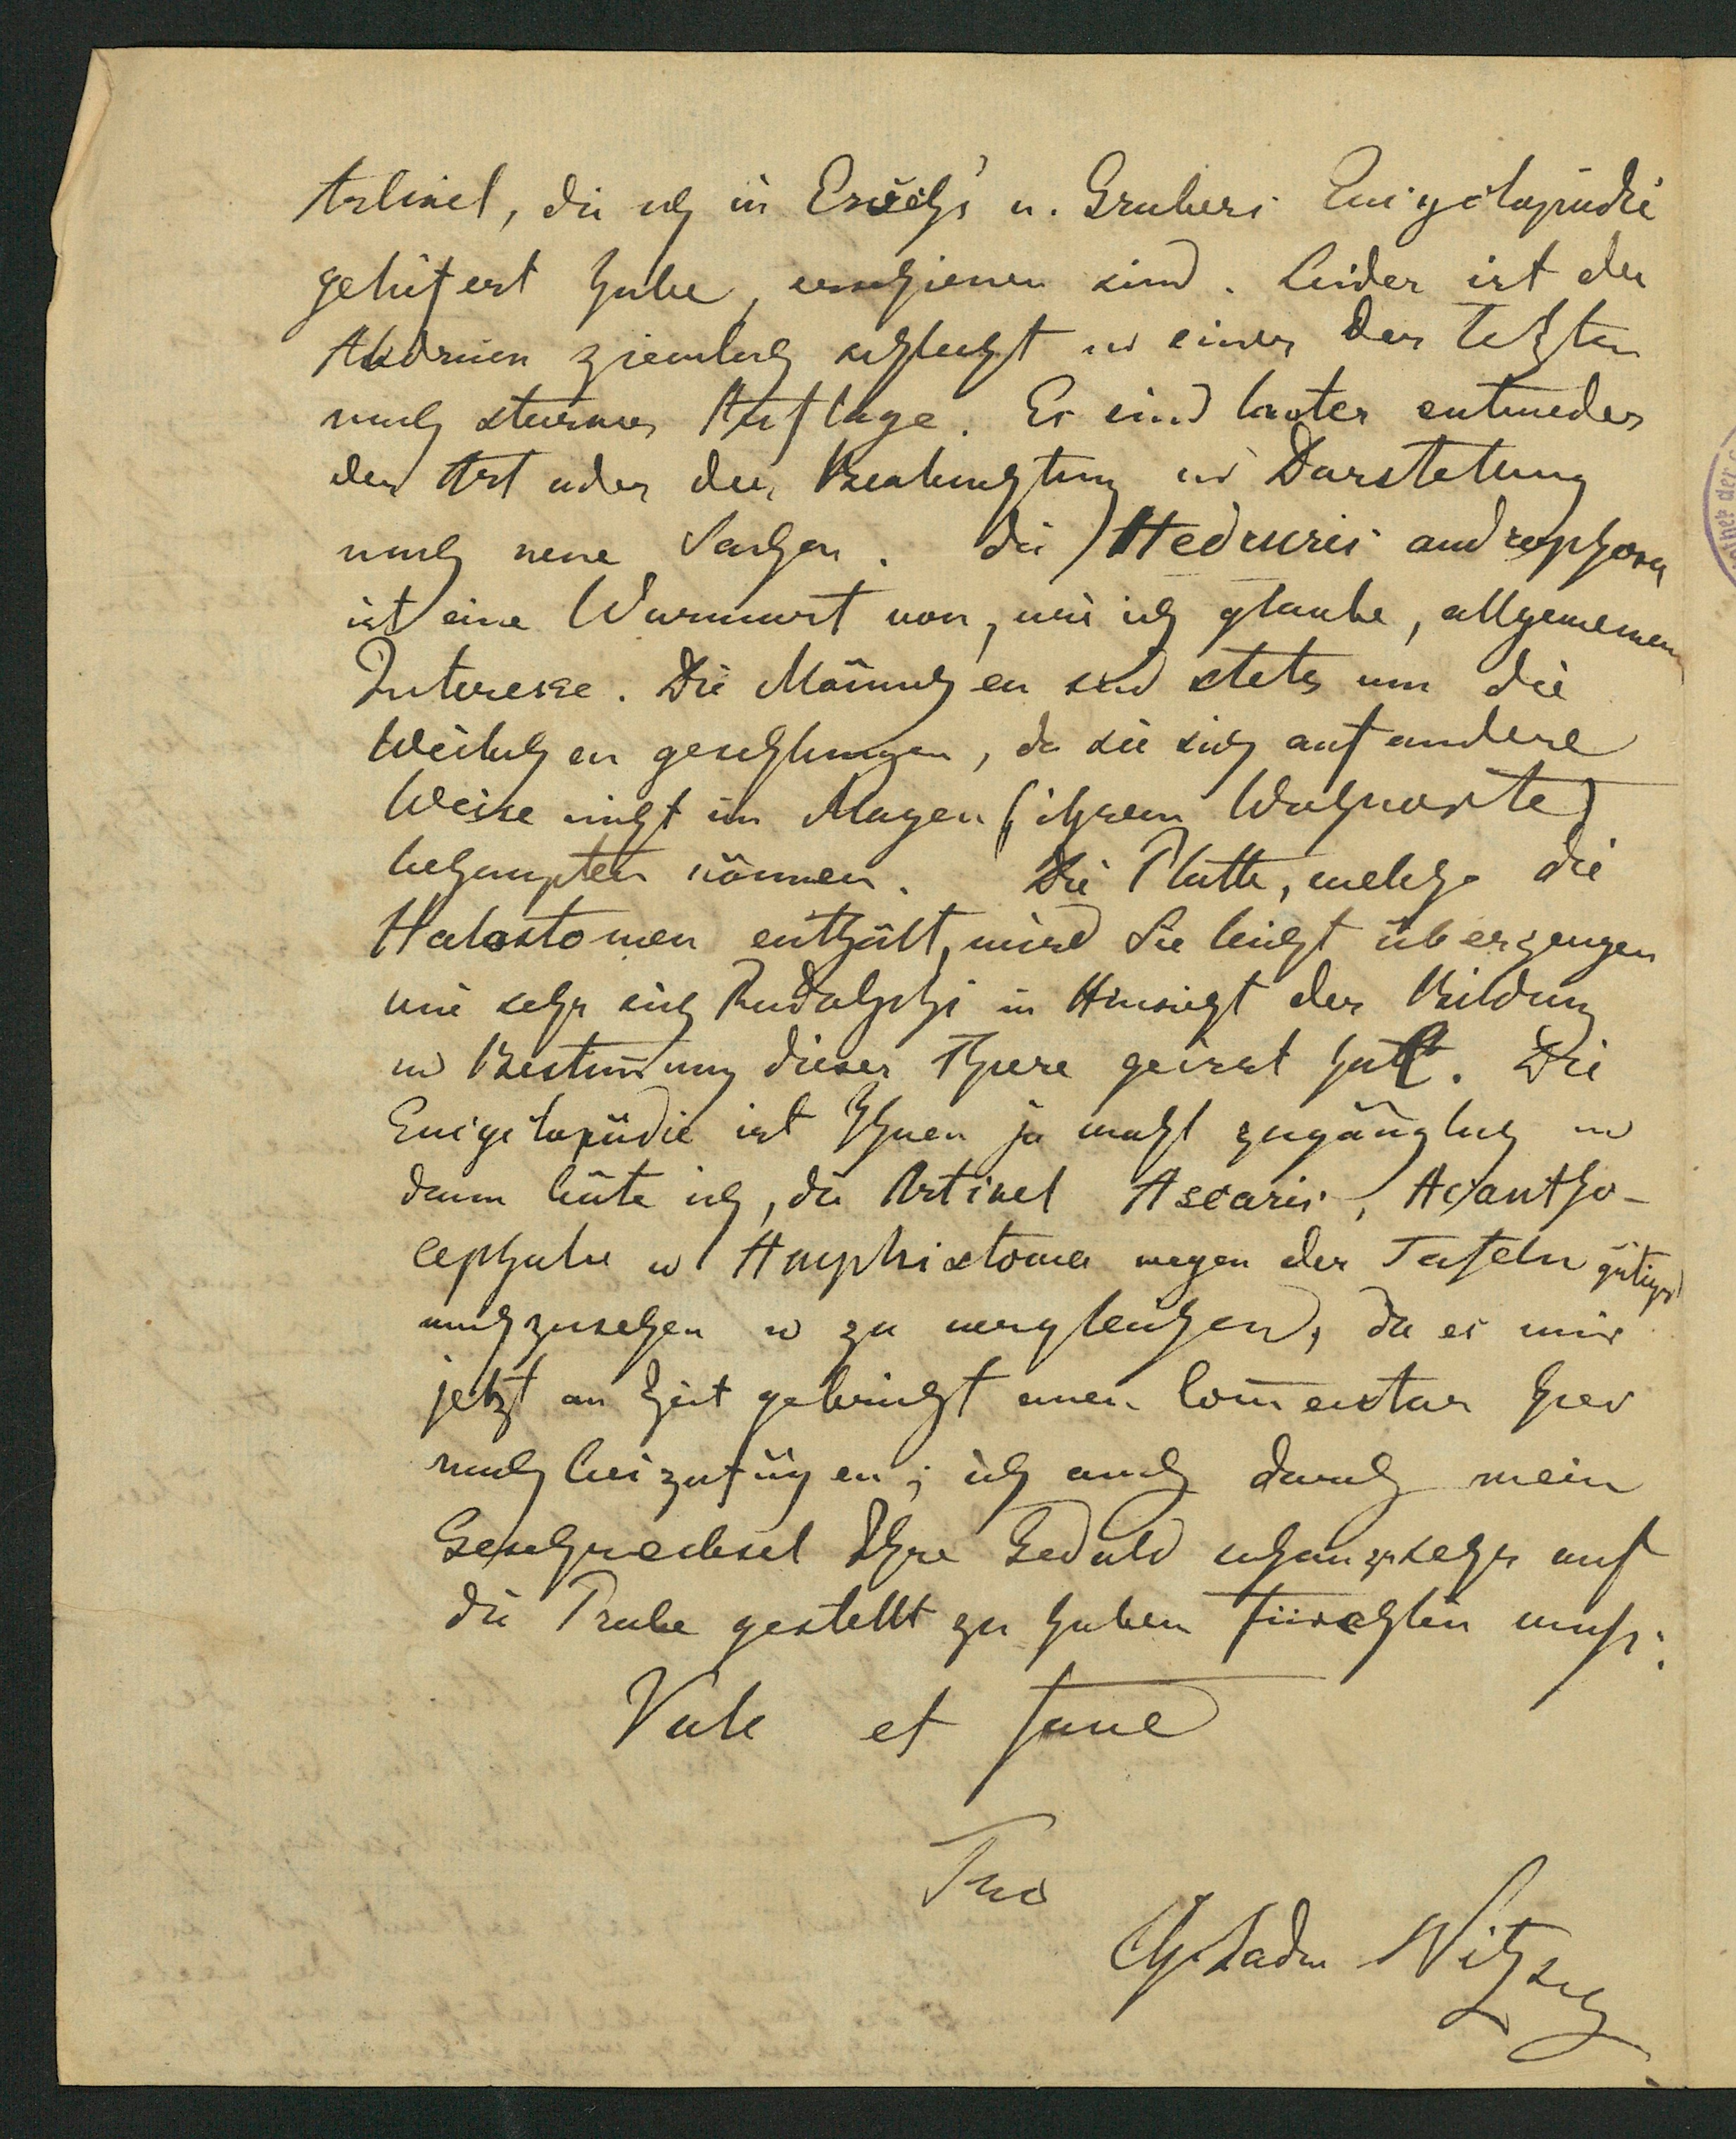 Artikel, die ich in Ersch's u. Grubers Encyclopädie
geliefert habe, erschienen sind. Leider ist der
Abdruck ziemlich schlecht u einer der letzten
nach starker Auflage. Es sind lauter entweder
der Art oder der Beobachtung u Darstellung
nach neue Sachen. Die Hedruris androphora
ist eine Wurmart von, wie ich glaube, allgemeinem
Interesse. Die Männchen sind stets um die
Weibchen geschlungen, da sie sich auf andere
Weise nicht im Magen (ihrem Wohnorte)
behaupten können. Die Platte, welche die
Holostomen enthält, wird Sie leicht überzeugen
wie sehr sich Rudolphi in Hinsicht der Bildung
u Bestimmung dieser Thiere geirrt hat. Die
Encyclopädie ist Ihnen ja wohl zugänglich u
dann bitte ich, die Artikel Ascaris, Acantho-
cephala u Amphistoma wegen der Tafeln gütigst
nachzusehen u zu vergleichen, da es mir
jetzt an Zeit gebricht einen Commentar hier
noch beizufügen; ich auch durch mein
Geschreibsel Ihre Geduld schon zu sehr auf
die Probe gestellt zu haben fürchten muß.
Vale et fave
Tuo
Chr. Ludw Nitzsch